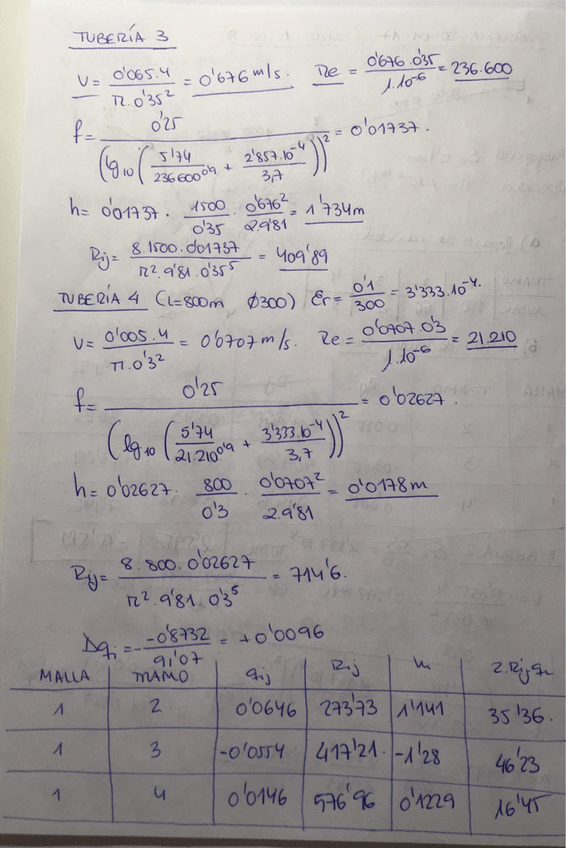 TUBERÍA 3
V = 0'065.4 / π.0'35² = 0'676 m/s. Re = 0'676.0'35 / 1.10⁻⁶ = 236.600
f = 0'25 / (lg₁₀(5'74 / 236600⁰'⁹ + 2'857.10⁻⁴ / 3,7))² = 0'01737.
h = 0'01737 . 1500 / 0'35 . 0'676² / 2.9'81 = 1'734m
Rij = 8.1500.0'01737 / π².9'81.0'35⁵ = 409'89
TUBERÍA 4 (L=800m Ø300) Er = 0'1 / 300 = 3'333.10⁻⁴.
V = 0'005.4 / π.0'3² = 0'0707 m/s. Re = 0'0707.0'3 / 1.10⁻⁶ = 21.210
f = 0'25 / (lg₁₀(5'74 / 21.210⁰'⁹ + 3'333.10⁻⁴ / 3,7))² = 0'02627.
h = 0'02627. 800 / 0'3 . 0'0707² / 2.9'81 = 0'0178m
Rij = 8.800.0'02627 / π².9'81.0'3⁵ = 714'6.
Δqi = - -0'8732 / 91'07 = +0'0096
MALLA TRAMO qij Rij h 2.Rij.qij
1 2 0'0646 273'73 1'141 35'36.
1 3 -0'0554 417'21. -1'28 46'23
1 4 0'0146 576'96 0'1229 16'45